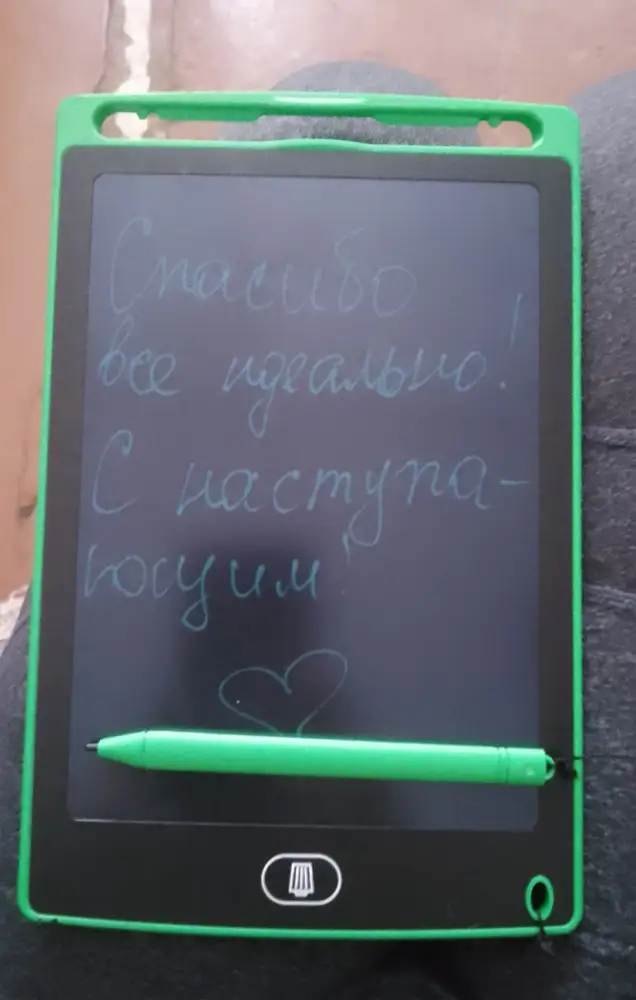 Спасибо
все идеально!
С наступа-
ющим!